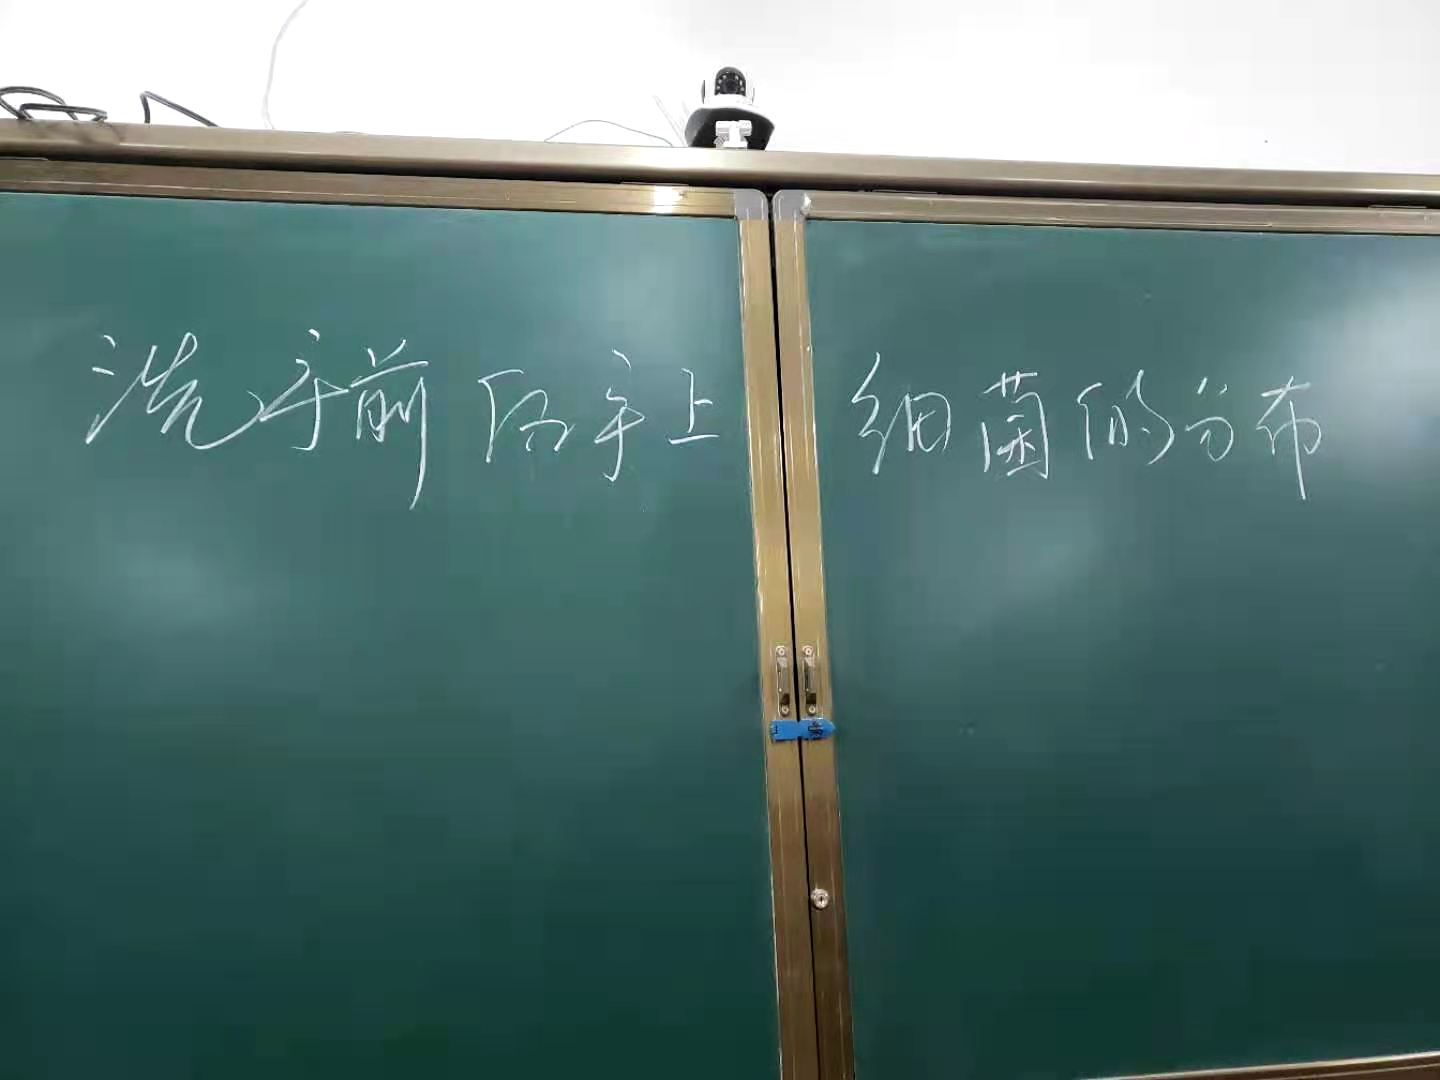 洗手前后手上细菌的分布